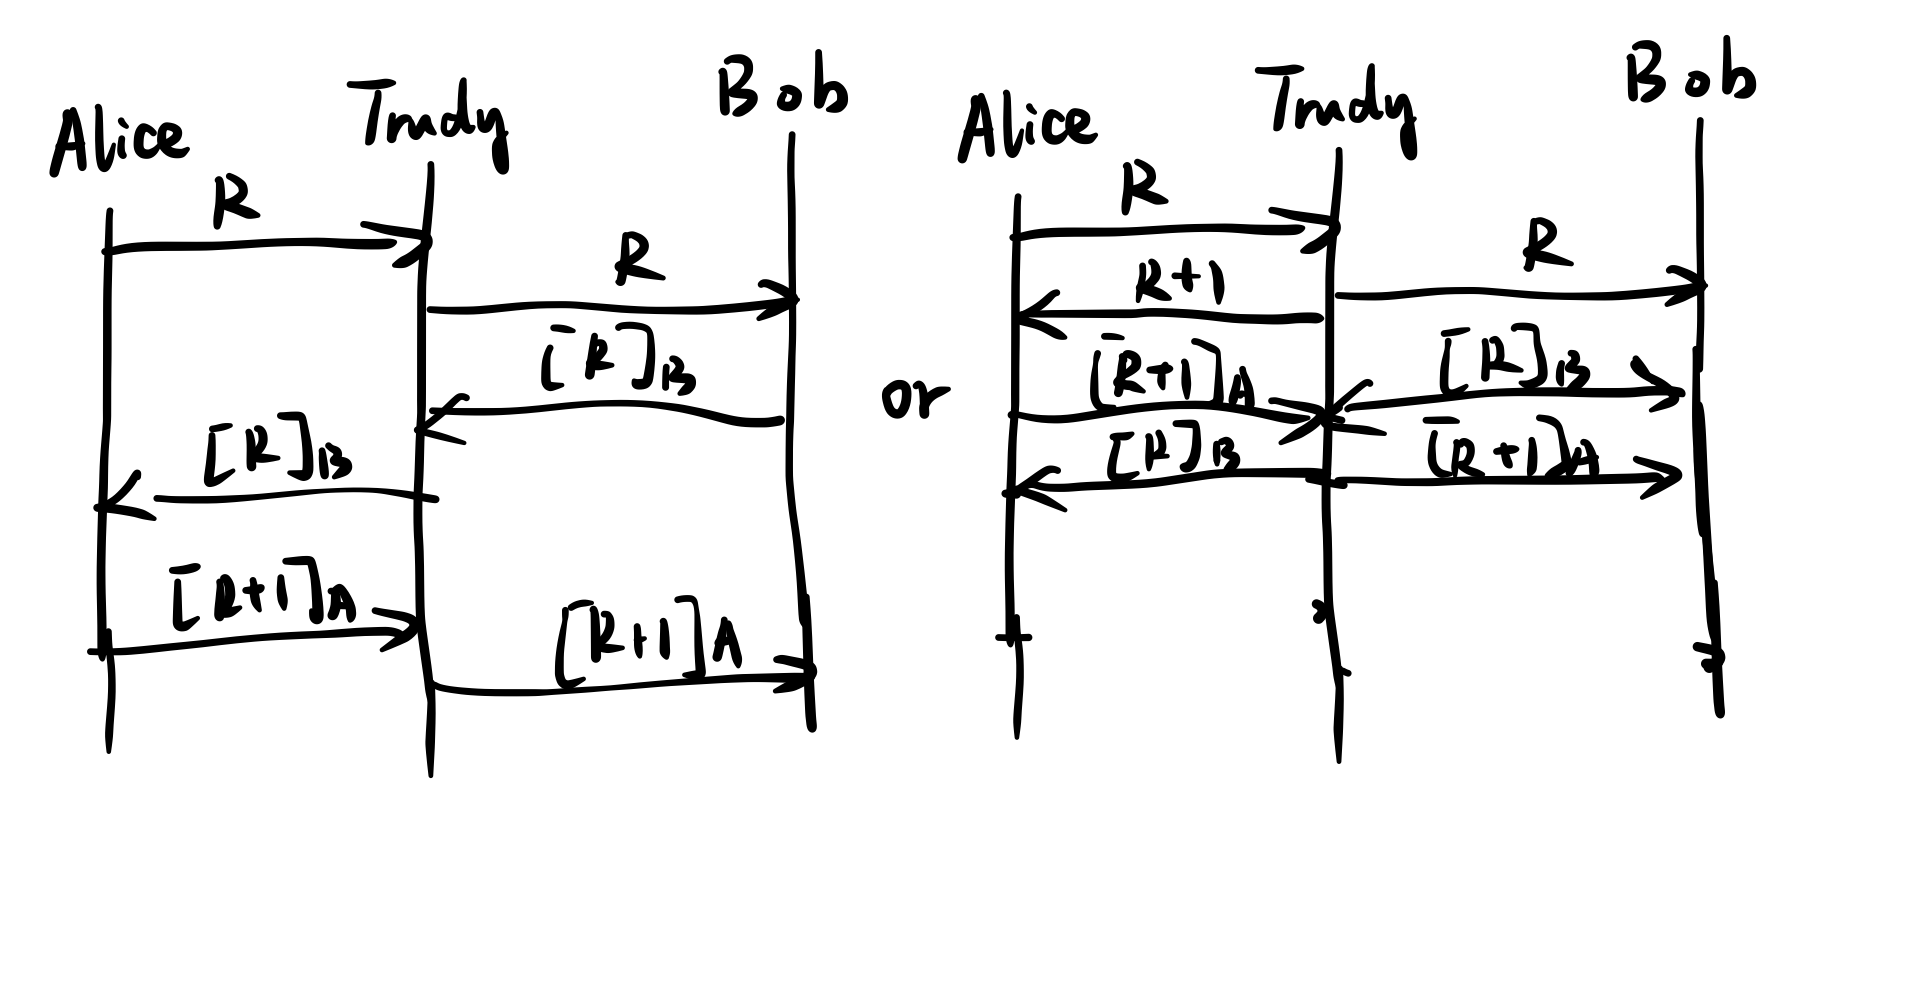 Alice Trudy Bob
R
R
[R]B
[R]B
[R+1]A
[R+1]A
or
Alice Trudy Bob
R
R
R+1
[R+1]A
[R]B
[R]B
[R+1]A